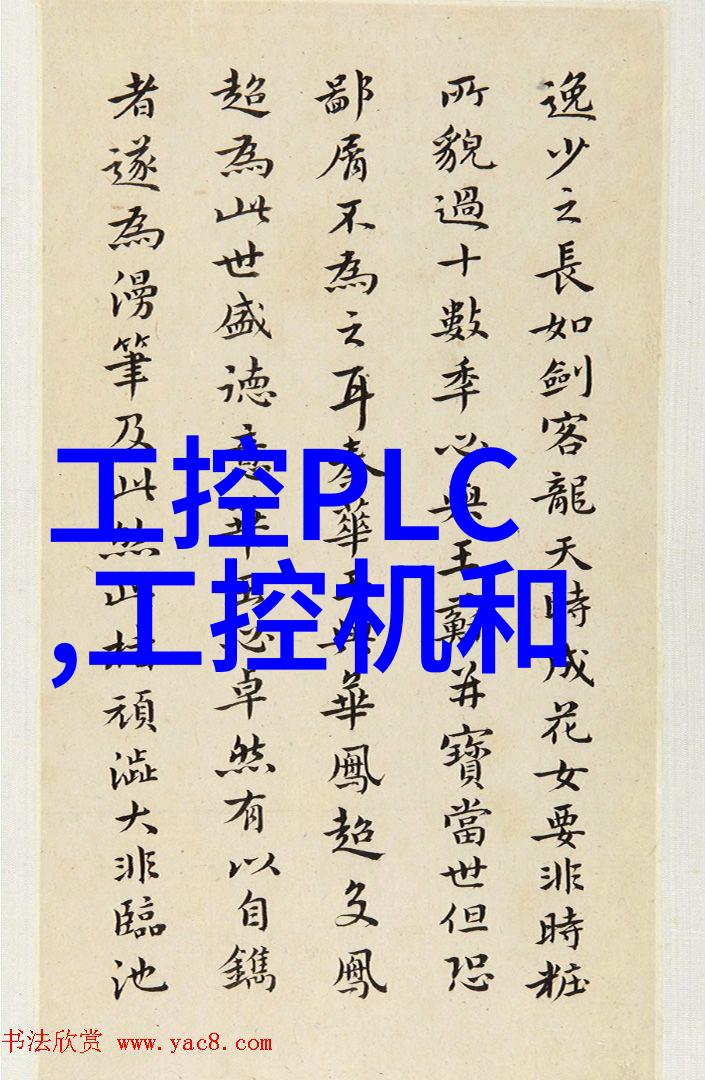 逸少之長如劍客龍天時成花女要非時粧
所貌過十數秊必與王并寶當世但恐
鄙屑不為之耳華與華鳳超鳳
超為此世盛德意必卓然有以自鐫
者遂為漫筆及此然此頑澁大非臨池
工控PLC
,工控机和
书法欣赏 www.yac8.com